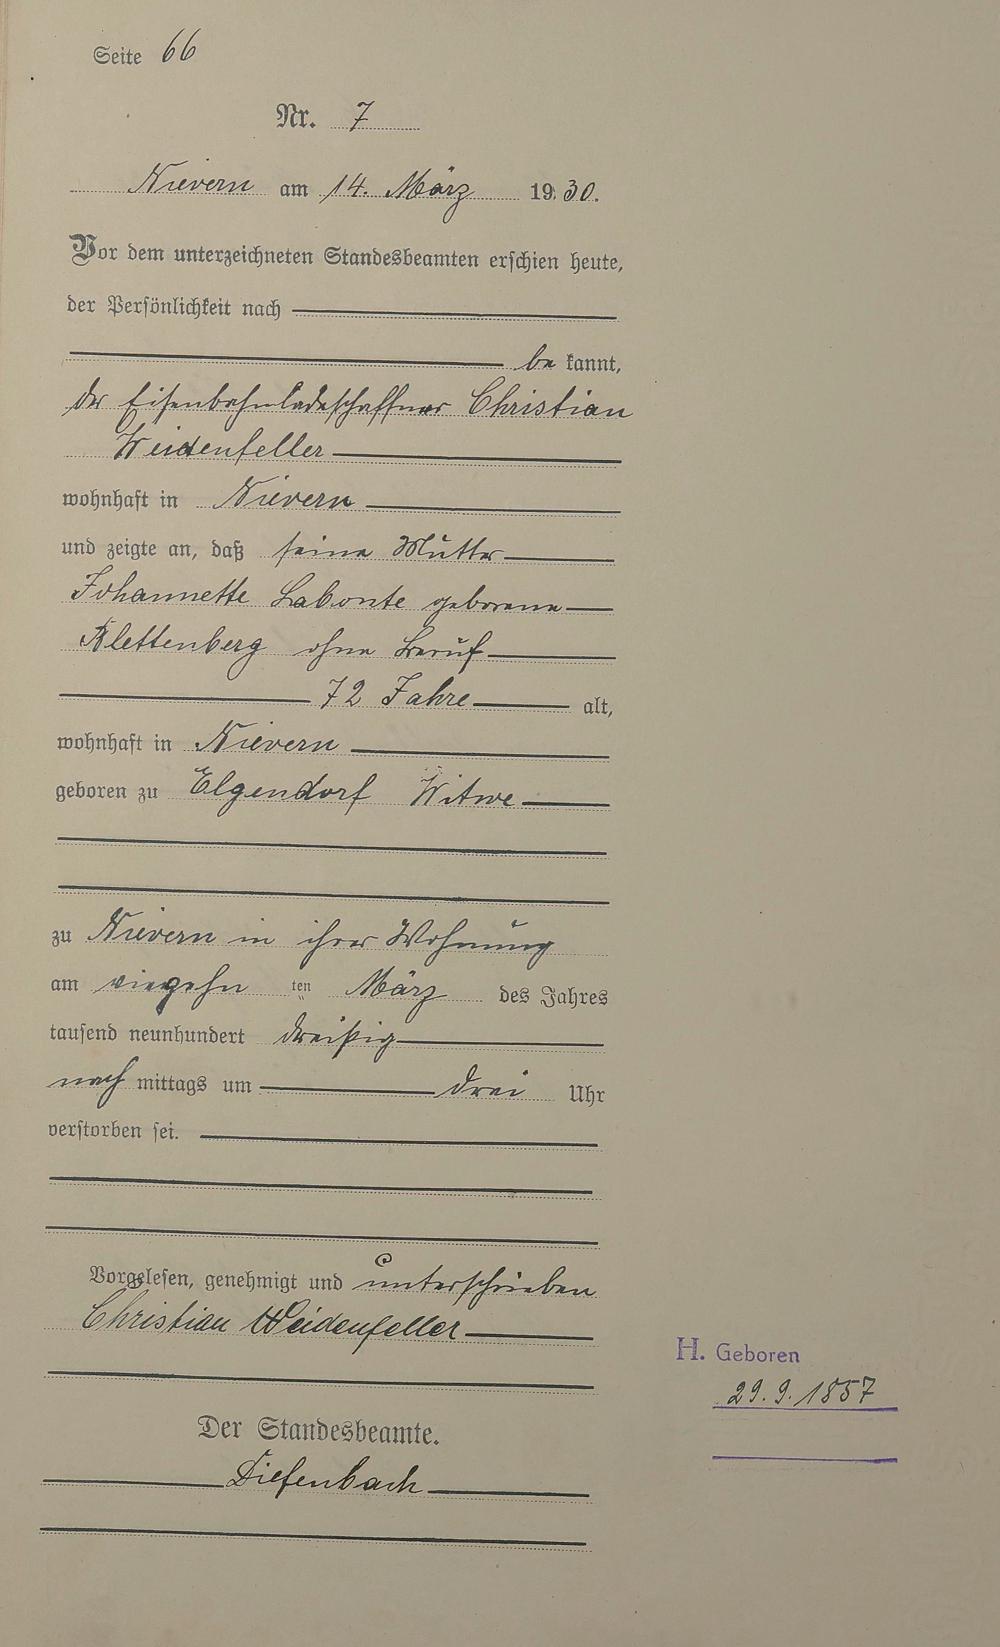 Seite 66
Nr. 7
Nievern am 14. März 1930.
Vor dem unterzeichneten Standesbeamten erschien heute,
der Persönlichkeit nach
be kannt,
der Eisenbahnladeschaffner Christian
Weidenfeller
wohnhaft in Nievern
und zeigte an, daß seine Mutter
Johannette Labonte geborene
Klettenberg ohne Beruf
72 Jahre alt,
wohnhaft in Nievern
geboren zu Elgendorf Witwe
zu Nievern in ihrer Wohnung
am vierzehn ten März des Jahres
tausend neunhundert dreißig
nach mittags um drei Uhr
verstorben sei.
Vorgelesen, genehmigt und unterschrieben
Christian Weidenfeller
H. Geboren
29.9.1857
Der Standesbeamte.
Diefenbach